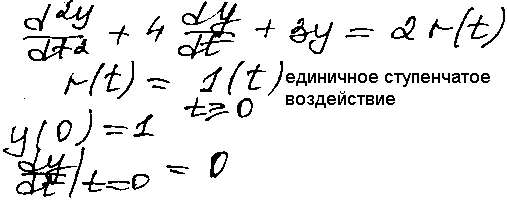 d²y/dt² + 4 dy/dt + 3y = 2 r(t)
r(t) = 1(t) единичное ступенчатое
t ≥ 0 воздействие
y(0) = 1
dy/dt|t=0 = 0